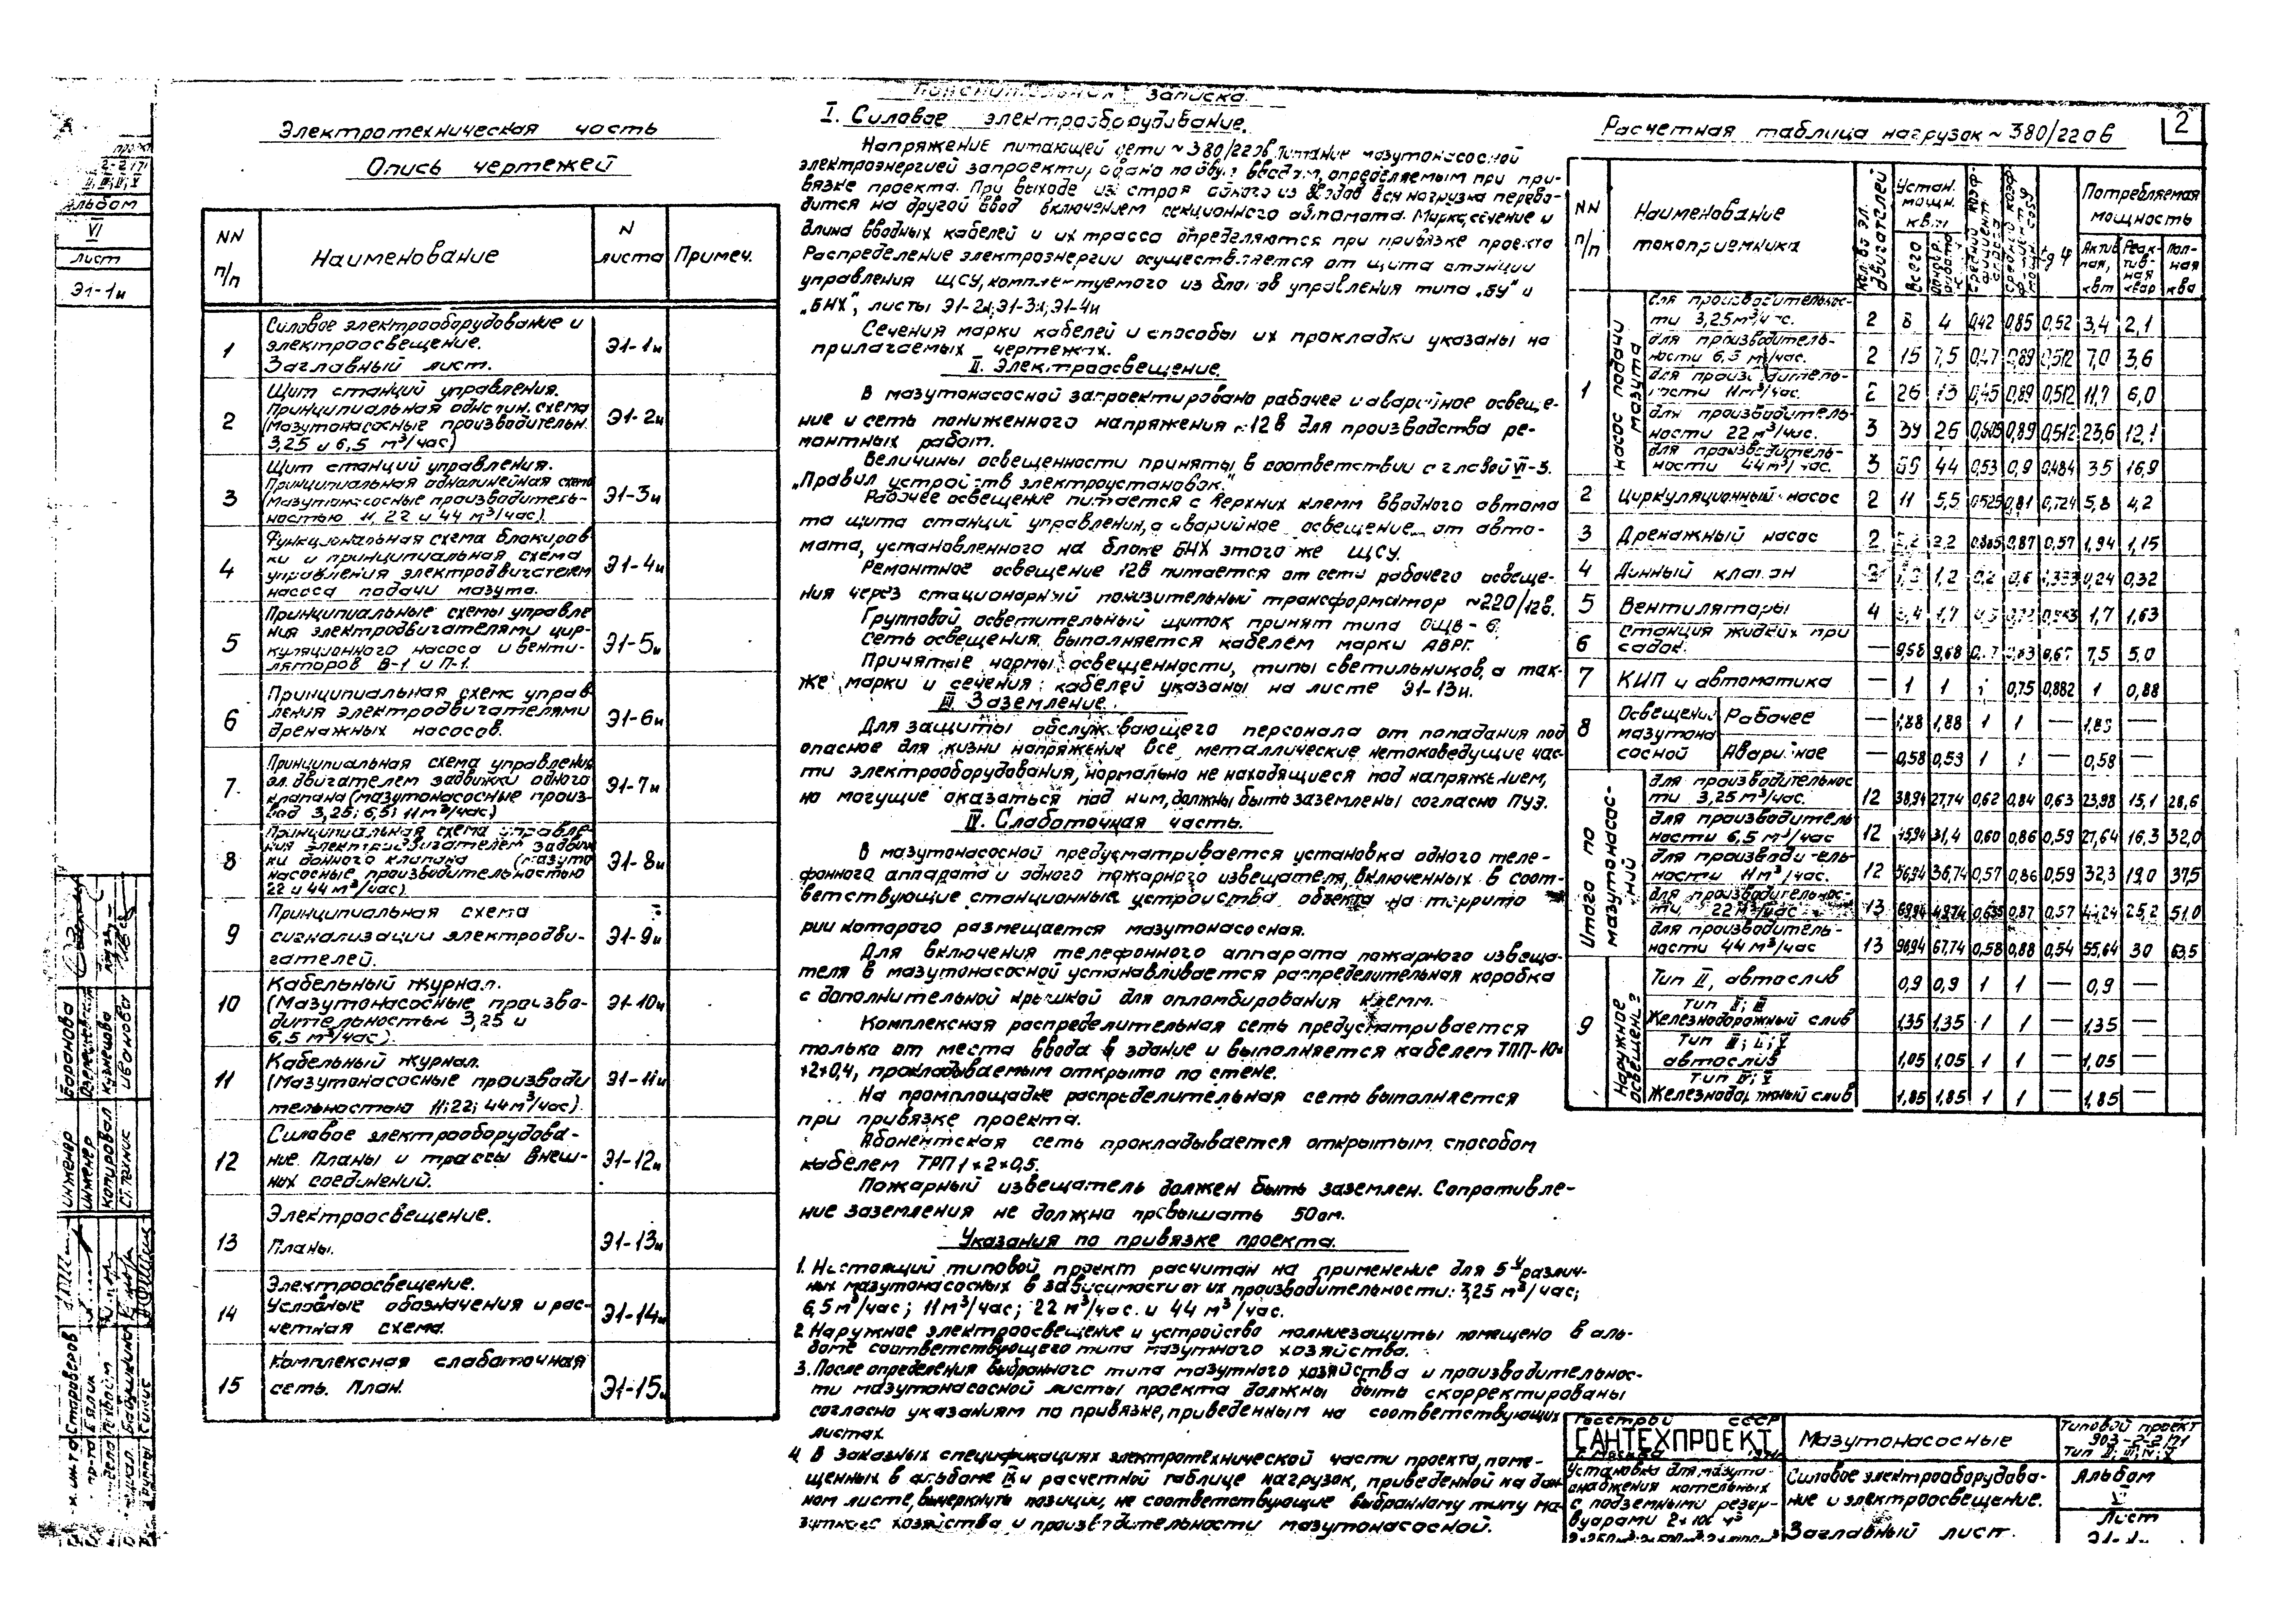 2
Электротехническая часть
Опись чертежей
NN п/п
Наименование
N листа
Примеч.
1
Силовое электрооборудование и
электроосвещение.
Заглавный лист.
Э1-1и
2
Щит станций управления.
Принципиальная однолин. схема
(Мазутонасосные производительн.
3,25 и 6,5 м³/час)
Э1-2и
3
Щит станций управления.
Принципиальная однолинейная схема
(мазутонасосные производитель-
ностью 11, 22 и 44 м³/час)
Э1-3и
4
Функциональная схема блокиров-
ки и принципиальная схема
управления электродвигателем
насоса подачи мазута.
Э1-4и
5
Принципиальные схемы управле
ния электродвигателями цир-
куляционного насоса и венти-
ляторов В-1 и П-1.
Э1-5и
6
Принципиальная схема управ-
ления электродвигателями
дренажных насосов.
Э1-6и
7
Принципиальная схема управления
эл. двигателем задвижки донного
клапана (мазутонасосные произ-
вод 3,25; 6,5; 11м³/час)
Э1-7и
8
Принципиальная схема управле-
ния электродвигателем задвиж
ки донного клапана (мазуто
насосные производительностью
22 и 44 м³/час)
Э1-8и
9
Принципиальная схема
сигнализации электродви-
гателей.
Э1-9и
10
Кабельный журнал.
(Мазутонасосные произво-
дительностью 3,25 и
6,5 м³/час)
Э1-10и
11
Кабельный журнал.
(Мазутонасосные производи
тельностью 11; 22; 44 м³/час)
Э1-11и
12
Силовое электрооборудова-
ние. Планы и трассы внеш-
них соединений.
Э1-12и
13
Электроосвещение.
Планы.
Э1-13и
14
Электроосвещение.
Условные обозначения и рас-
четная схема.
Э1-14и
15
Комплексная слаботочная
сеть. План.
Э1-15и
Пояснительная записка.
I. Силовое электрооборудование.
Напряжение питающей сети ~380/220в. Питание мазутонасосной
электроэнергией запроектировано по двум вводам, определяемым при при-
вязке проекта. При выходе из строя одного из вводов вся нагрузка перево-
дится на другой ввод включением секционного автомата. Марка, сечение и
длина вводных кабелей и их трасса определяются при привязке проекта
Распределение электроэнергии осуществляется от щита станции
управления ЩСУ, комплектуемого из блоков управления типа „БУ" и
„БНХ", листы Э1-2и, Э1-3и, Э1-4и
Сечения марки кабелей и способы их прокладки указаны на
прилагаемых чертежах.
II. Электроосвещение.
В мазутонасосной запроектировано рабочее и аварийное освеще-
ние и сеть пониженного напряжения ~12в для производства ре-
монтных работ.
Величины освещенности приняты в соответствии с главой VI-3.
„Правил устройств электроустановок."
Рабочее освещение питается с верхних клемм вводного автома
та щита станций управления, а аварийное освещение от авто-
мата, установленного на блоке БНХ этого же ЩСУ.
Ремонтное освещение 12в питается от сети рабочего освеще-
ния через стационарный понизительный трансформатор ~220/12в.
Групповой осветительный щиток принят типа ОЩВ-6
Сеть освещения выполняется кабелем марки АВРГ.
Принятые нормы освещенности, типы светильников, а так-
же марки и сечения кабелей указаны на листе Э1-13и.
III. Заземление.
Для защиты обслуживающего персонала от попадания под
опасное для жизни напряжение все металлические нетоковедущие час-
ти электрооборудования, нормально не находящиеся под напряжением,
но могущие оказаться под ним, должны быть заземлены согласно ПУЭ.
IV. Слаботочная часть.
В мазутонасосной предусматривается установка одного теле-
фонного аппарата и одного пожарного извещателя, включенных в соот-
ветствующие станционные устройства объекта на террито
рии которого размещается мазутонасосная.
Для включения телефонного аппарата пожарного извеща-
теля в мазутонасосной устанавливается распределительная коробка
с дополнительной крышкой для опломбирования клемм.
Комплексная распределительная сеть предусматривается
только от места ввода в здание и выполняется кабелем ТПП-10×
×2×0,4, прокладываемым открыто по стене.
На промплощадке распределительная сеть выполняется
при привязке проекта.
Абонентская сеть прокладывается открытым способом
кабелем ТРП 1×2×0,5.
Пожарный извещатель должен быть заземлен. Сопротивле-
ние заземления не должно превышать 50 ом.
Указания по привязке проекта.
1. Настоящий типовой проект расчитан на применение для 5и различ-
ных мазутонасосных в зависимости от их производительности: 3,25 м³/час;
6,5 м³/час; 11м³/час; 22 м³/час. и 44 м³/час.
2. Наружное электроосвещение и устройство молниезащиты помещено в аль-
боме соответствующего типа мазутного хозяйства.
3. После определения выбранного типа мазутного хозяйства и производительнос-
ти мазутонасосной листы проекта должны быть скорректированы
согласно указаниям по привязке, приведенным на соответствующих
листах.
4. В заказных спецификациях электротехнической части проекта, поме-
щенных в альбоме IX и расчетной таблице нагрузок, приведенной на дан-
ном листе, вычеркнуть позиции, не соответствующие выбранному типу ма-
зутного хозяйства и производительности мазутонасосной.
Расчетная таблица нагрузок ~380/220в
NN п/п
Наименование токоприемника
Кол-во эл. двигателей
Устан. мощн. квт
Всего
tg φ
Потребляемая мощность
Актив ная, квт
Реак- тив- ная квар
Пол- ная ква
1
насос подачи мазута
для производительнос-
ти 3,25м³/час. 2 8 4 0,42 0,85 0,52 3,4 2,1
для производитель-
ности 6,5 м³/час. 2 15 7,5 0,47 0,89 0,512 7,0 3,6
для производитель-
ности 11м³/час. 2 26 13 0,45 0,89 0,512 11,7 6,0
для производитель-
ности 22 м³/час. 3 39 26 0,605 0,89 0,512 23,6 12,1
для производитель-
ности 44м³/час. 3 66 44 0,53 0,9 0,484 35 16,9
2 Циркуляционный насос 2 11 5,5 0,525 0,81 0,724 5,8 4,2
3 Дренажный насос 2 2,2 0,87 0,57 1,94 1,15
4 Донный клапан 1,2 0,2 0,6 1,333 0,24 0,32
5 Вентиляторы 4 3,4 1,7 1,7 1,63
6 Станция жидких при
садок. — 9,68 9,68 0,83 0,67 7,5 5,0
7 КИП и автоматика — 1 1 1 0,75 0,882 1 0,88
8 Освещение мазутона сосной
Рабочее — 1,88 1,88 1 1 — 1,88 —
Аварийное — 0,58 0,53 1 1 — 0,58 —
Итого по мазутонасос- ний
для производительнос
ти 3,25м³/час. 12 38,94 27,74 0,62 0,84 0,63 23,98 15,1 28,6
для производитель
ности 6,5 м³/час 12 45,94 31,4 0,60 0,86 0,59 27,64 16,3 32,0
для производитель-
ности 11м³/час. 12 56,94 36,74 0,57 0,86 0,59 32,3 19,0 37,5
для производительнос-
ти 22м³/час 13 69,94 49,74 0,635 0,87 0,57 44,24 25,2 51,0
для производитель-
ности 44 м³/час 13 96,94 67,74 0,58 0,88 0,54 55,64 30 63,5
9
Наружное освещение
Тип II, автослив 0,9 0,9 1 1 — 0,9 —
Тип II; III
Железнодорожный слив 1,35 1,35 1 1 — 1,35 —
автослив 1,05 1,05 1 1 — 1,05 —
Тип IV; V
Железнодорожный слив 1,85 1,85 1 1 — 1,85 —
Госстрой СССР
САНТЕХПРОЕКТ
г. Москва
Установка для мазуто-
снабжения котельных
с подземными резер-
вуарами 2×100 м³
Мазутонасосные
Силовое электрооборудова-
ние и электроосвещение.
Заглавный лист.
Типовой проект
903-2-2/71
Тип II; III; IV; V
Альбом
VI
Лист
Э1-1и
Альбом
VI
Лист
Э1-1и
инженер Баранова
инженер
копировал Кузнецова
ст. техник Иванова
Староверов